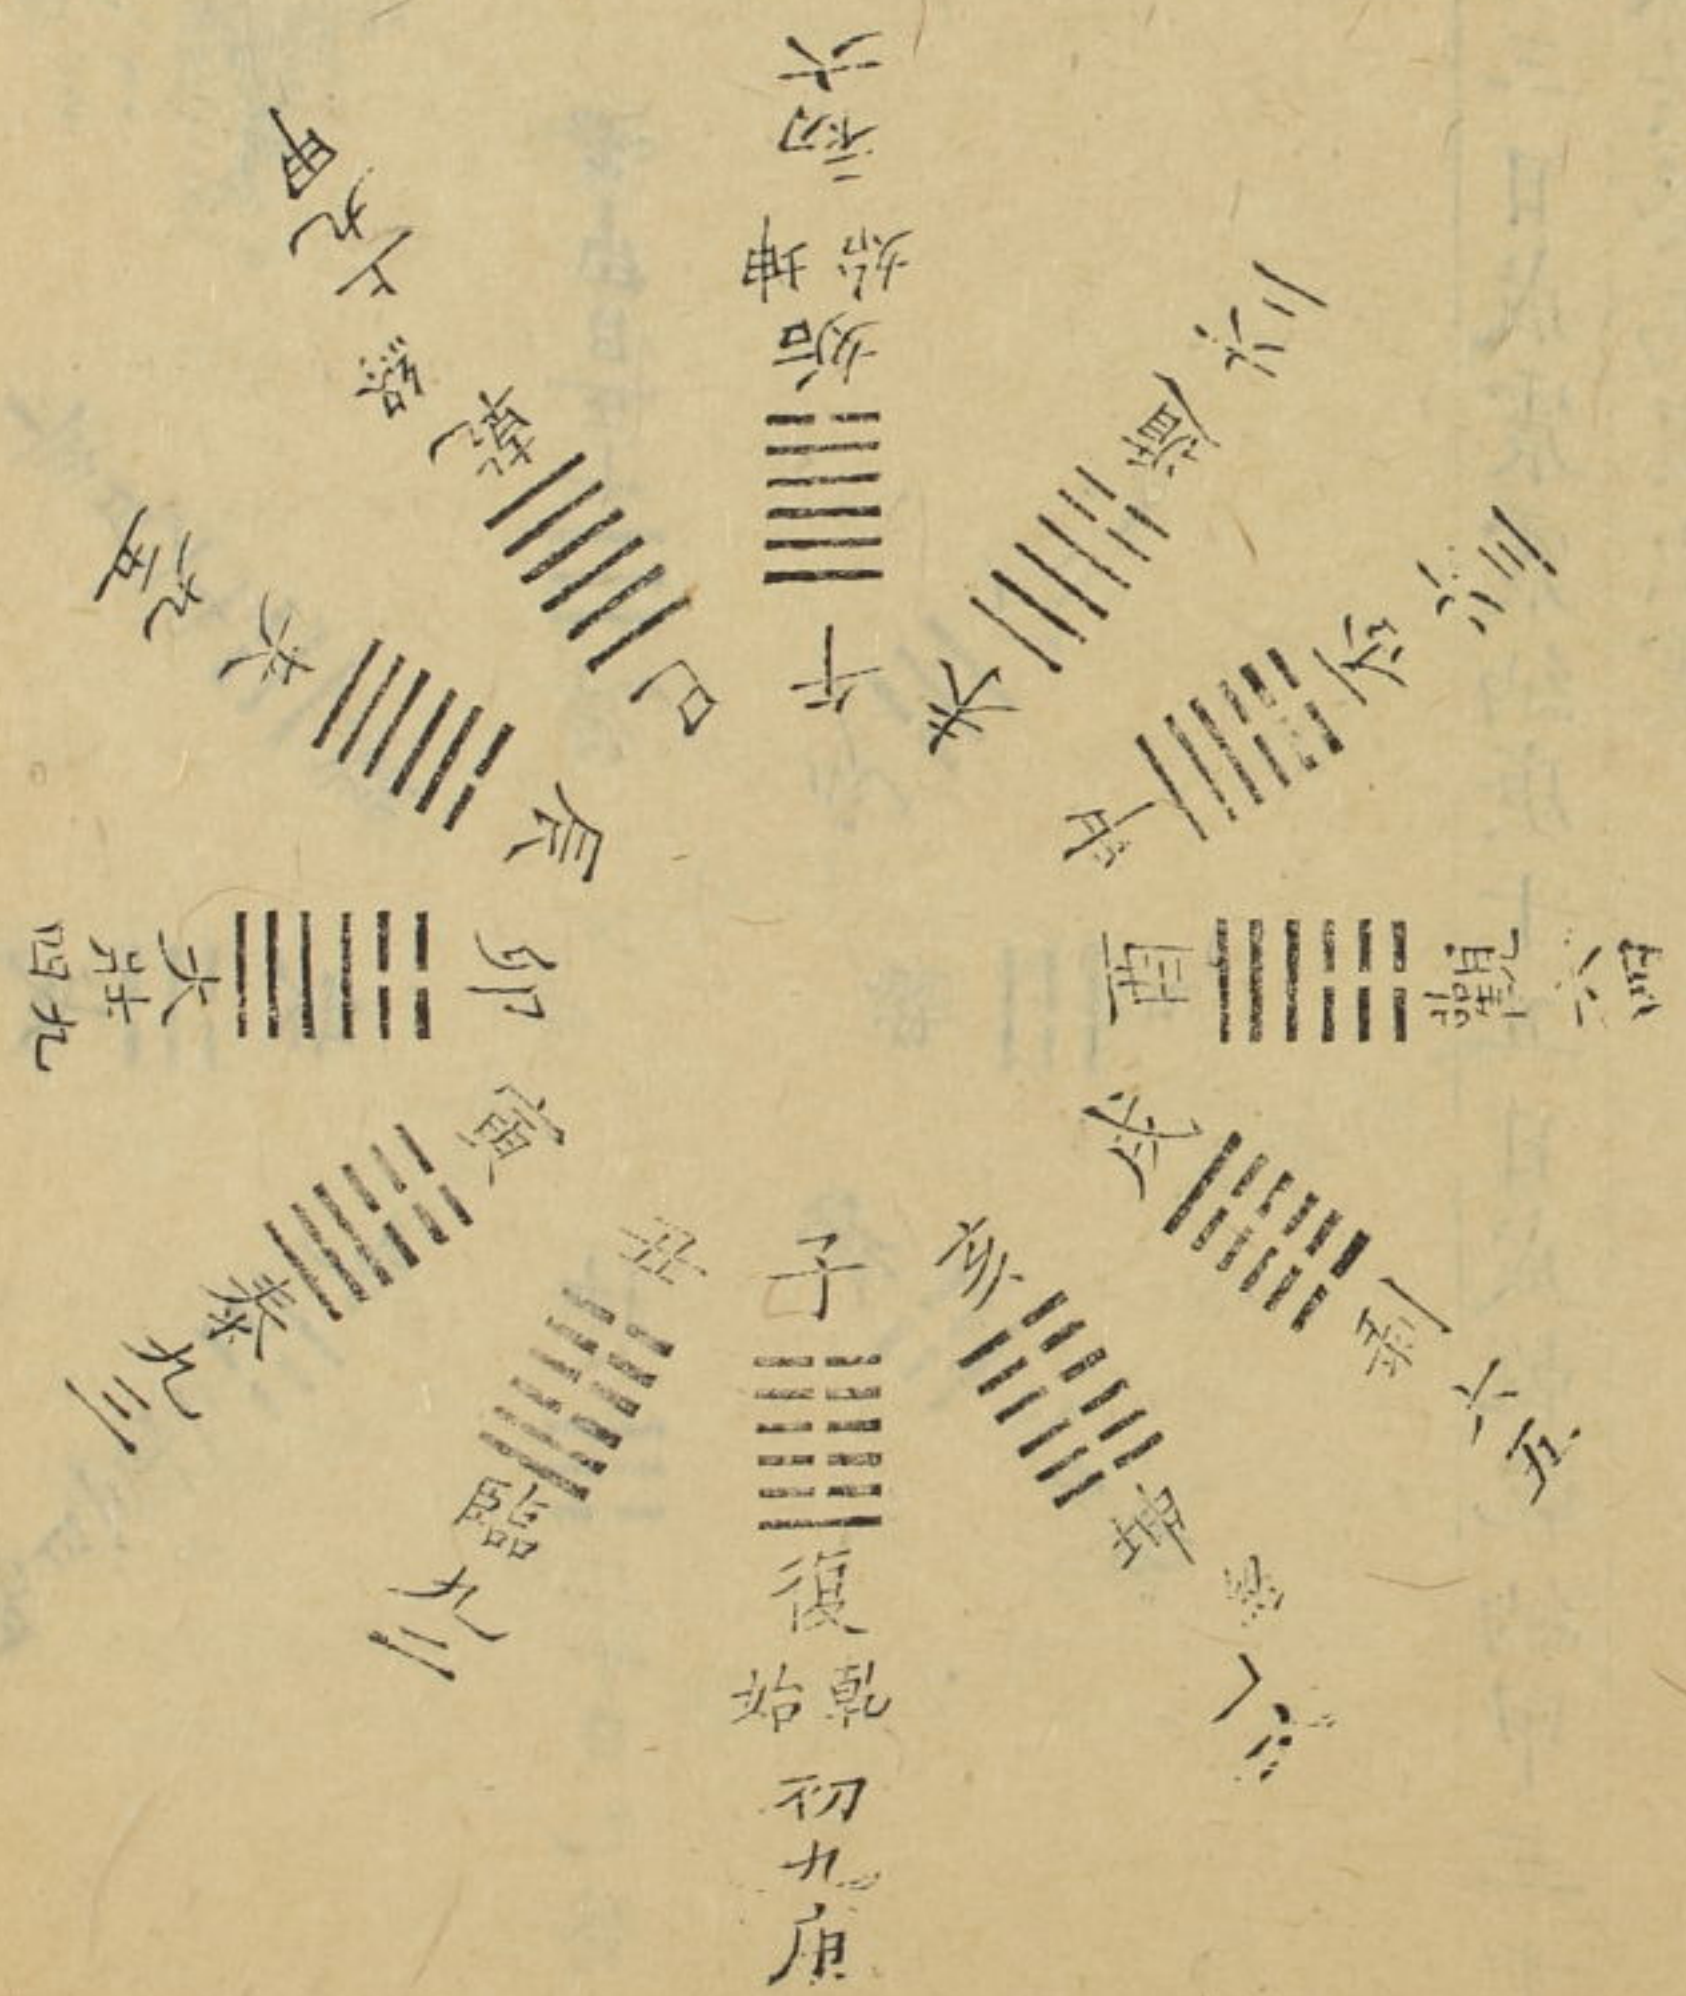 子 復 乾始 初九 庚
丑 臨 九二
寅 泰 九三
卯 大壯 四九
辰 夬 九五
巳 乾 終 上九 甲
午 姤 坤始 初六
未 遯 二六
申 否 三六
酉 觀 六四
戌 剝 六五
亥 坤 終 上六